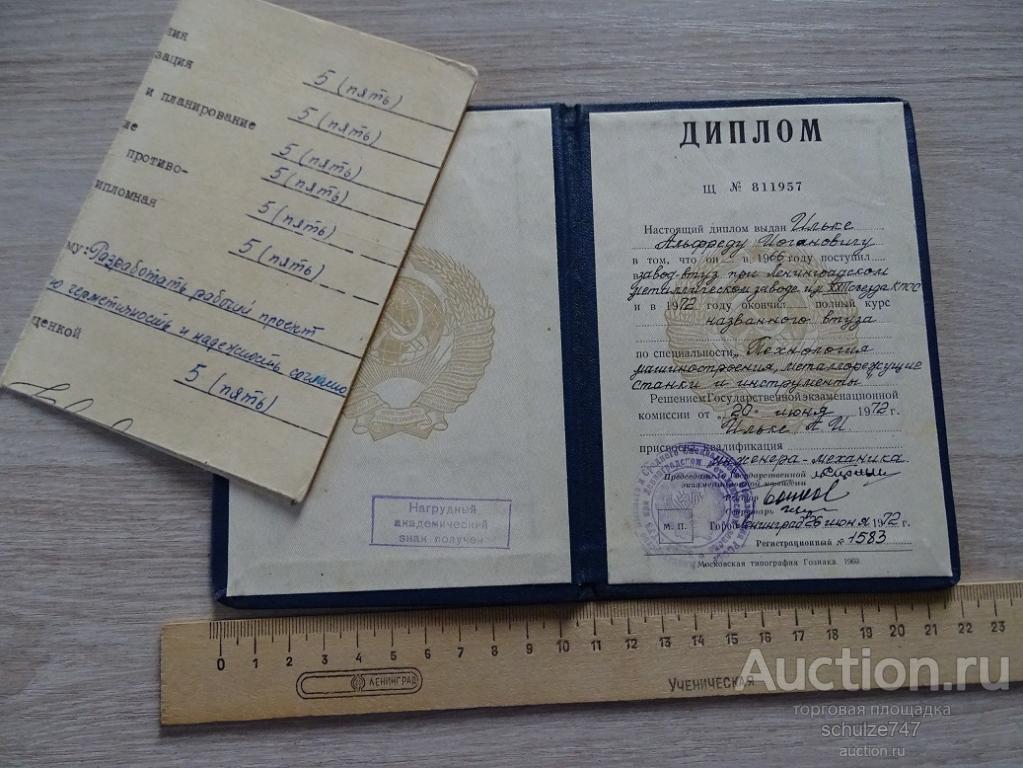 ния
зация
и планирование
ие
противо-
ипломная
5 (пять)
5 (пять)
5 (пять)
5 (пять)
5 (пять)
5 (пять)
му: Разработать рабочий проект
ю герметичность и надежность согласно
ценкой
5 (пять)
Нагрудный
академический
знак получен
ДИПЛОМ
Щ № 811957
Настоящий диплом выдан Ильке
Альфреду Иогановичу
в том, что он в 1966 году поступил
в завод-втуз при Ленинградском
металлическом заводе им. XXII съезда КПСС
и в 1972 году окончил полный курс
названного втуза
по специальности „Технология
машиностроения, металлорежущие
станки и инструменты
Решением Государственной экзаменационной
комиссии от „20" июня 1972 г.
Ильке А И
присвоена квалификация
инженера-механика.
Председатель Государственной
экзаменационной комиссии
Ректор
Секретарь
М. П.
Город Ленинград 26 июня 1972 г.
Регистрационный № 1583
Московская типография Гознака. 1969.
0 1 2 3 4 5 6 7 8 9 10 11 12 13 14 15 16 17 18 19 20 21 22 23
ЛЕНИНГРАД
УЧЕНИЧЕСКАЯ
Auction.ru
торговая площадка
schulze747
auction.ru